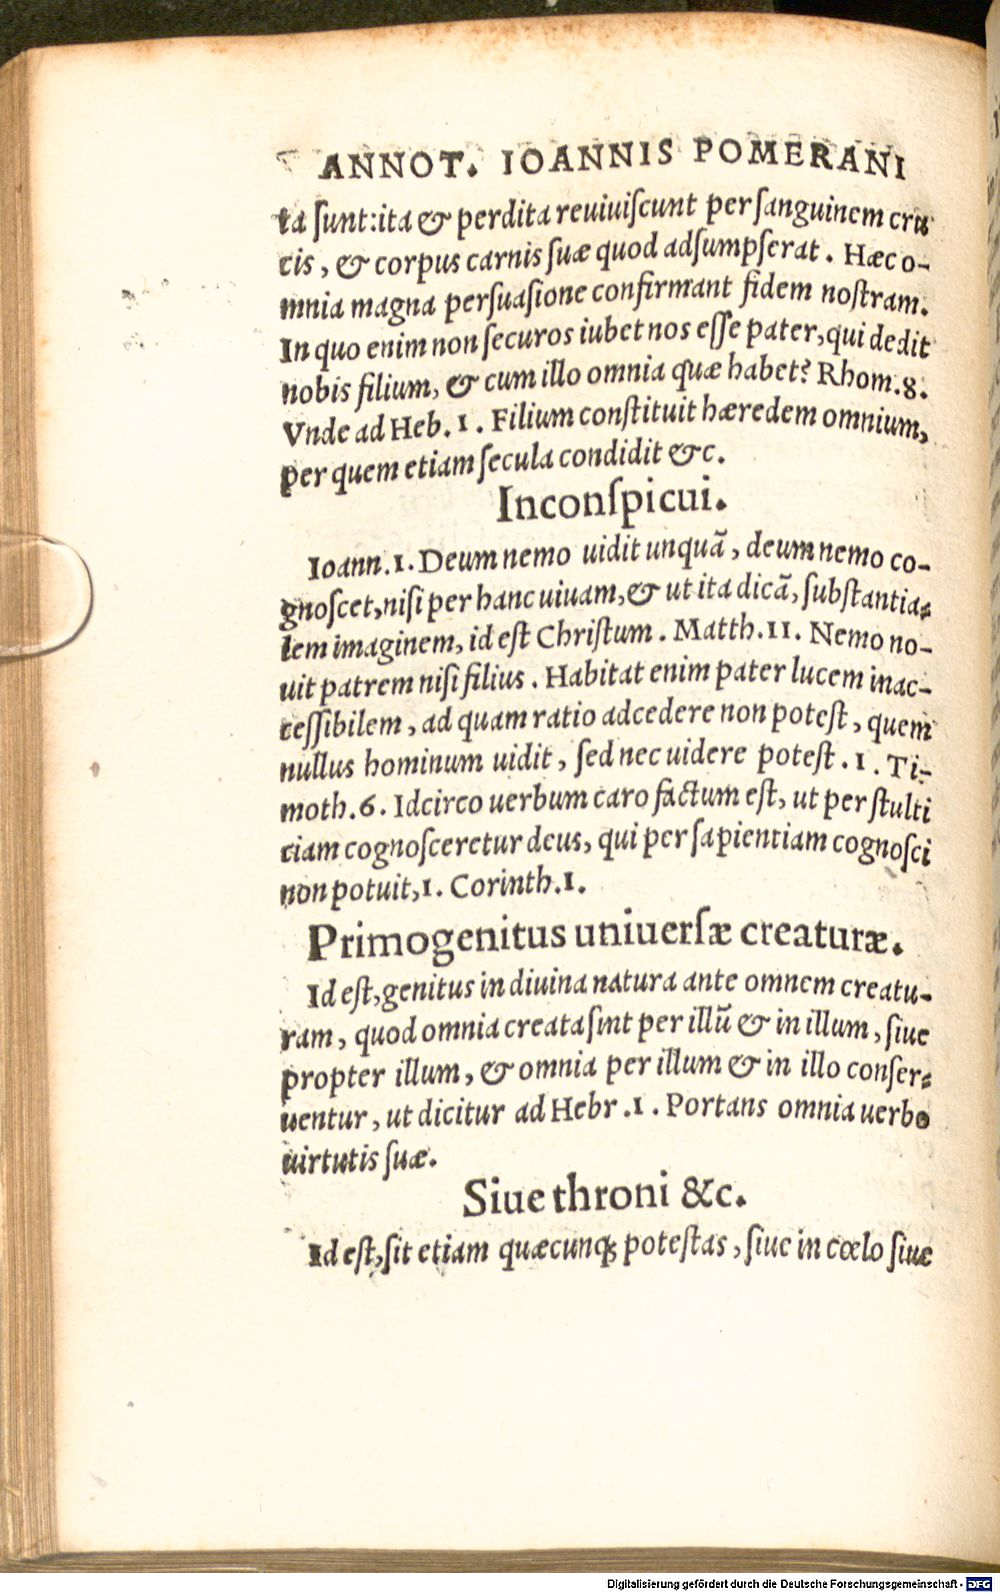 ANNOT. IOANNIS POMERANI
ta ſunt:ita & perdita reuiuiſcunt per ſanguinem cru
cis, & corpus carnis ſuæ quod adſumpſerat. Hæc o-
mnia magna perſuaſione confirmant fidem noſtram.
In quo enim non ſecuros iubet nos eſſe pater, qui dedit
nobis filium, & cum illo omnia quæ habet? Rhom.8.
Vnde ad Heb.1. Filium conſtituit hæredem omnium,
per quem etiam ſecula condidit &c.
Inconſpicui.
Ioann.1. Deum nemo uidit unquā, deum nemo co-
gnoſcet, niſi per hanc uiuam, & ut ita dicā, ſubſtantia-
lem imaginem, id eſt Chriſtum. Matth.11. Nemo no-
uit patrem niſi filius. Habitat enim pater lucem inac-
ceſſibilem, ad quam ratio adcedere non poteſt, quem
nullus hominum uidit, ſed nec uidere poteſt. 1. Ti-
moth.6. Idcirco uerbum caro factum eſt, ut per ſtulti
ciam cognoſceretur deus, qui per ſapientiam cognoſci
non potuit, 1. Corinth.1.
Primogenitus uniuerſæ creaturæ.
Id eſt, genitus in diuina natura ante omnem creatu-
ram, quod omnia creata ſint per illū & in illum, ſiue
propter illum, & omnia per illum & in illo conſer-
uentur, ut dicitur ad Hebr.1. Portans omnia uerbo
uirtutis ſuæ.
Siue throni &c.
Id eſt, ſit etiam quæcunqꝫ poteſtas, ſiue in cœlo ſiue
Digitalisierung gefördert durch die Deutsche Forschungsgemeinschaft - DFG